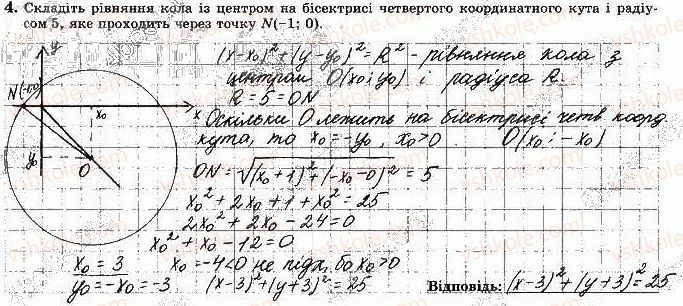 4. Складіть рівняння кола із центром на бісектрисі четвертого координатного кута і радіу-
сом 5, яке проходить через точку N(−1; 0).
y
(x-x₀)²+(y-y₀)²=R² - рівняння кола з
центром O(x₀; y₀) і радіуса R.
N(-1;0)
x₀ x
R=5=ON
Оскільки O лежить на бісектрисі четв коорд
кута, то x₀=-y₀, x₀>0 O(x₀; -x₀)
y₀ O
ON=√(x₀+1)²+(-x₀-0)² = 5
x₀²+2x₀+1+x₀²=25
2x₀²+2x₀-24=0
x₀²+x₀-12=0
x₀=3 x₀=-4<0 не підх, бо x₀>0
y₀=-x₀=-3 (x-3)²+(y+3)²=25
Відповідь: (x-3)²+(y+3)²=25